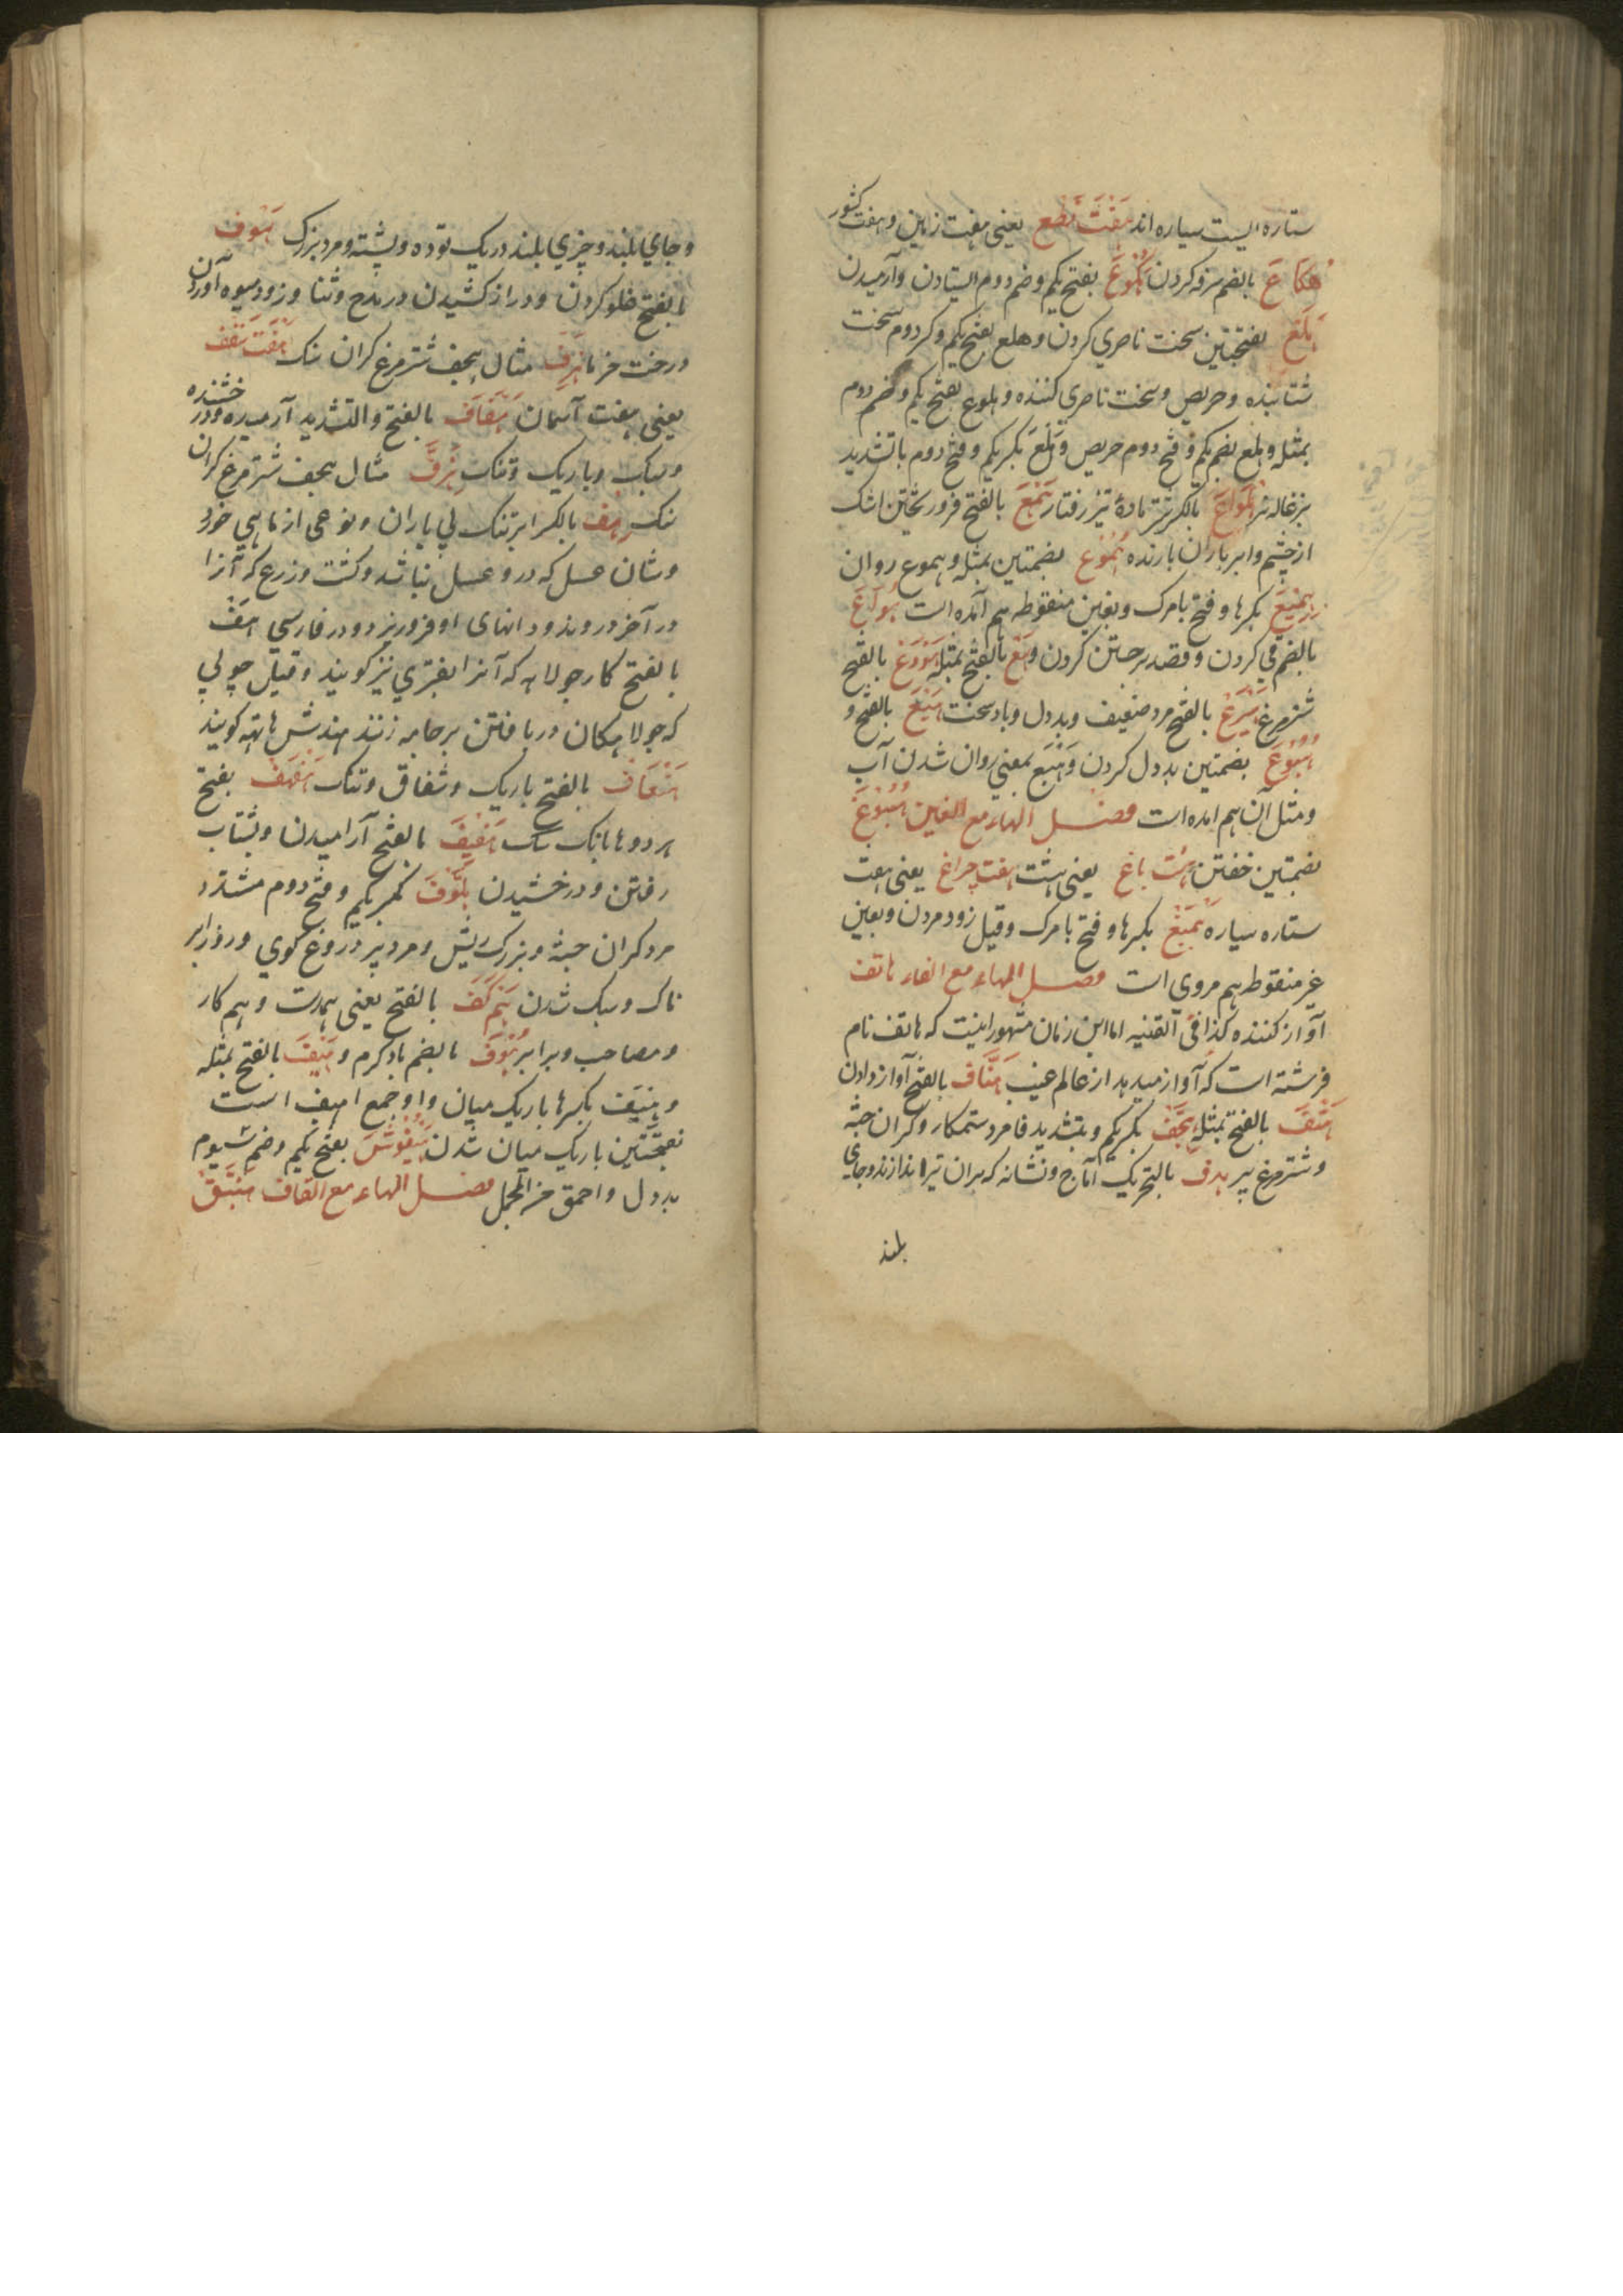 ستاره ایست سیاره اند هَفْت بُضع یعنی هفت زمین و هفت کشور
هُکاعَ بالضم سرفه کردن هُکُوعَ بفتح یکم وضم دوم ایستادن و آرمیدن
هَلَعَ بفتحتین سخت ناصبري کردن و هلع بفتح یکم و کسر دوم سخت
شتابنده و حریص و سخت ناصبري کننده و هلوع بفتح یکم وضم دوم
بمثله و هلع بضم یکم و فتح دوم حریص و هِلَّعَ بکسر یکم و فتح دوم با تشدید
بزغاله نر هِلْوَاعَ بالکسر شتر مادهٔ تیز رفتار هَمْعَ بالفتح فرو ریختن اشک
از چشم و ابر باران بارنده هُمُوْع بضمتین بمثله و هموع روان
هِمْیَعَ بکسر ها و فتح یا مرک و بغین منقوطه هم آمده است هُوَاعَ
بالضم قي کردن و قصد برجستن کردن و هَوْعَ بالفتح بمثله هَوْذَعَ بالفتح
شتر مرغ هَیْرَعْ بالفتح مرد ضعیف و بد دل و باد سخت هَیْعَ بالفتح و
هُیُوْعَ بضمتین بد دل کردن و هَیَع بمعني روان شدن آب
و مثل آن هم امده است فصـــل الهاء مع الغین هُبُوْغَ
بضمتین خفتن هَشْت باغ یعنی بهشت هفت چراغ یعنی هفت
ستاره سیاره هِمْیَغْ بکسر ها و فتح یا مرک و قیل زود مردن و بعین
غیر منقوطه هم مروي است فصـــل الهاء مع الفاء هاتف
آواز کننده کذا فی القنیه اما این زمان مشهور اینست که هاتف نام
فرشته است که آواز میدهد از عالم غیب هَتَّاف بالفتح آواز دادن
هَتْفَ بالفتح بمثله هِجَفّ بکسر یکم و بتشدید فا مرد ستمکار و کران جثه
و شتر مرغ پیر هدف بالتحریک آماج و نشانه که بران تیر اندازند و جاي
بلند
و جاي بلند و چیزي بلند در یک توده و پشته و مرد بزرک هَرْف
بالفتح غلو کردن و دراز کشیدن در مدح و ثنا و زود میوه آوردن
درخت خرما هِزَفّ مثال هجف شتر مرغ کران سنک هَفْت سَقْف
یعنی هفت آسمان هَفَّافَ بالفتح والتشدید آرمیده و درخشنده
و سبک و باریک و تنک هِزَفَّ مثال هجف شتر مرغ کران
سنک هِف بالکسر ابر تنک بي باران و نوعی از ماهي خورد
و شان عسل که درو عسل نباشد و کشت و زرع که آنرا
در آخر دروند و دانهای او فرو ریزد و در فارسي هَفْ
بالفتح کار جولاهه که آنرا بفتري نیز کویند و قیل چوبي
که جولاهکان در بافتن بر جامه زنند هندش هاتهه کویند
هَفْهَافْ بالفتح باریک و شفاف و تنک هَفْهَفْ بفتح
هر دو ها بانک سک هَفِیفَ بالفتح آرامیدن و بشتاب
رفتن و درخشیدن هِلَّوْفَ بکسر یکم و فتح دوم مشدد
مرد کران جثه و بزرک ریش و مرد پیر دروغ کوي و روز ابر
ناک و سبک شدن هَم کَفَ بالفتح یعنی همدست و هم کار
و مصاحب و برابر هُوْفَ بالضم باد کرم و هَیْفَ بالفتح بمثله
و هِیَف بکسر ها باریک میان و او جمع اهیف است
بفتحتین باریک میان شدن هَیْفُوْشَ بفتح یکم وضم سیوم
بد دل و احمق من المجمل فصـــل الهاء مع القاف هَبَنَّقْ